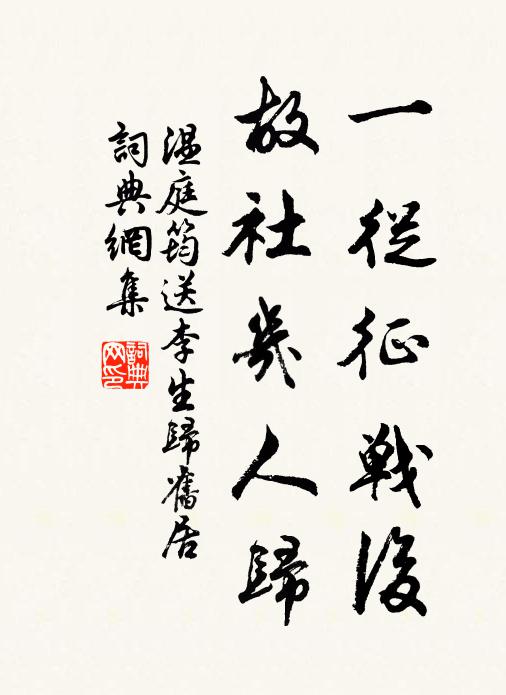 一從征戰後
故社幾人歸
溫庭筠送李生歸舊居
詞典網集
詞典網印